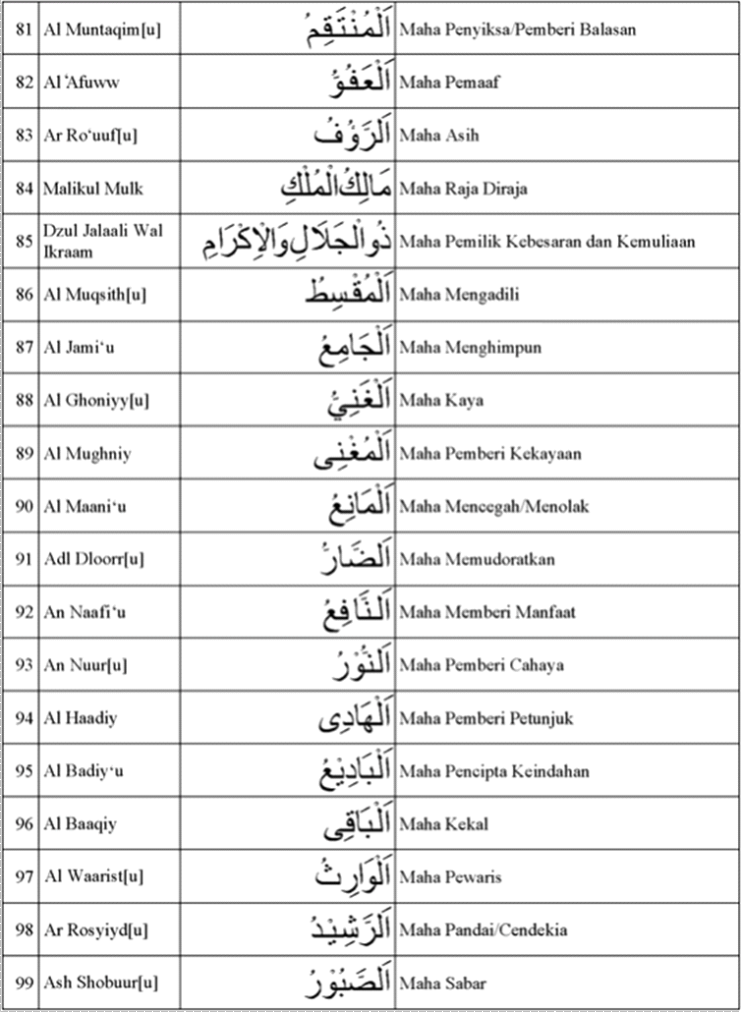 81 Al Muntaqim[u] اَلْمُنْتَقِمُ Maha Penyiksa/Pemberi Balasan
82 Al ‘Afuww اَلْعَفُوُّ Maha Pemaaf
83 Ar Ro‘uuf[u] اَلرَّؤُفُ Maha Asih
84 Malikul Mulk مَالِكُ الْمُلْكِ Maha Raja Diraja
85 Dzul Jalaali Wal Ikraam ذُو الْجَلَالِ وَالْاِكْرَامِ Maha Pemilik Kebesaran dan Kemuliaan
86 Al Muqsith[u] اَلْمُقْسِطُ Maha Mengadili
87 Al Jami‘u اَلْجَامِعُ Maha Menghimpun
88 Al Ghoniyy[u] اَلْغَنِيُّ Maha Kaya
89 Al Mughniy اَلْمُغْنِى Maha Pemberi Kekayaan
90 Al Maani‘u اَلْمَانِعُ Maha Mencegah/Menolak
91 Adl Dloorr[u] اَلضَّارُّ Maha Memudoratkan
92 An Naafi‘u اَلنَّافِعُ Maha Memberi Manfaat
93 An Nuur[u] اَلنُّوْرُ Maha Pemberi Cahaya
94 Al Haadiy اَلْهَادِى Maha Pemberi Petunjuk
95 Al Badiy‘u اَلْبَادِيْعُ Maha Pencipta Keindahan
96 Al Baaqiy اَلْبَاقِى Maha Kekal
97 Al Waarist[u] اَلْوَارِثُ Maha Pewaris
98 Ar Rosyiyd[u] اَلرَّشِيْدُ Maha Pandai/Cendekia
99 Ash Shobuur[u] اَلصَّبُوْرُ Maha Sabar